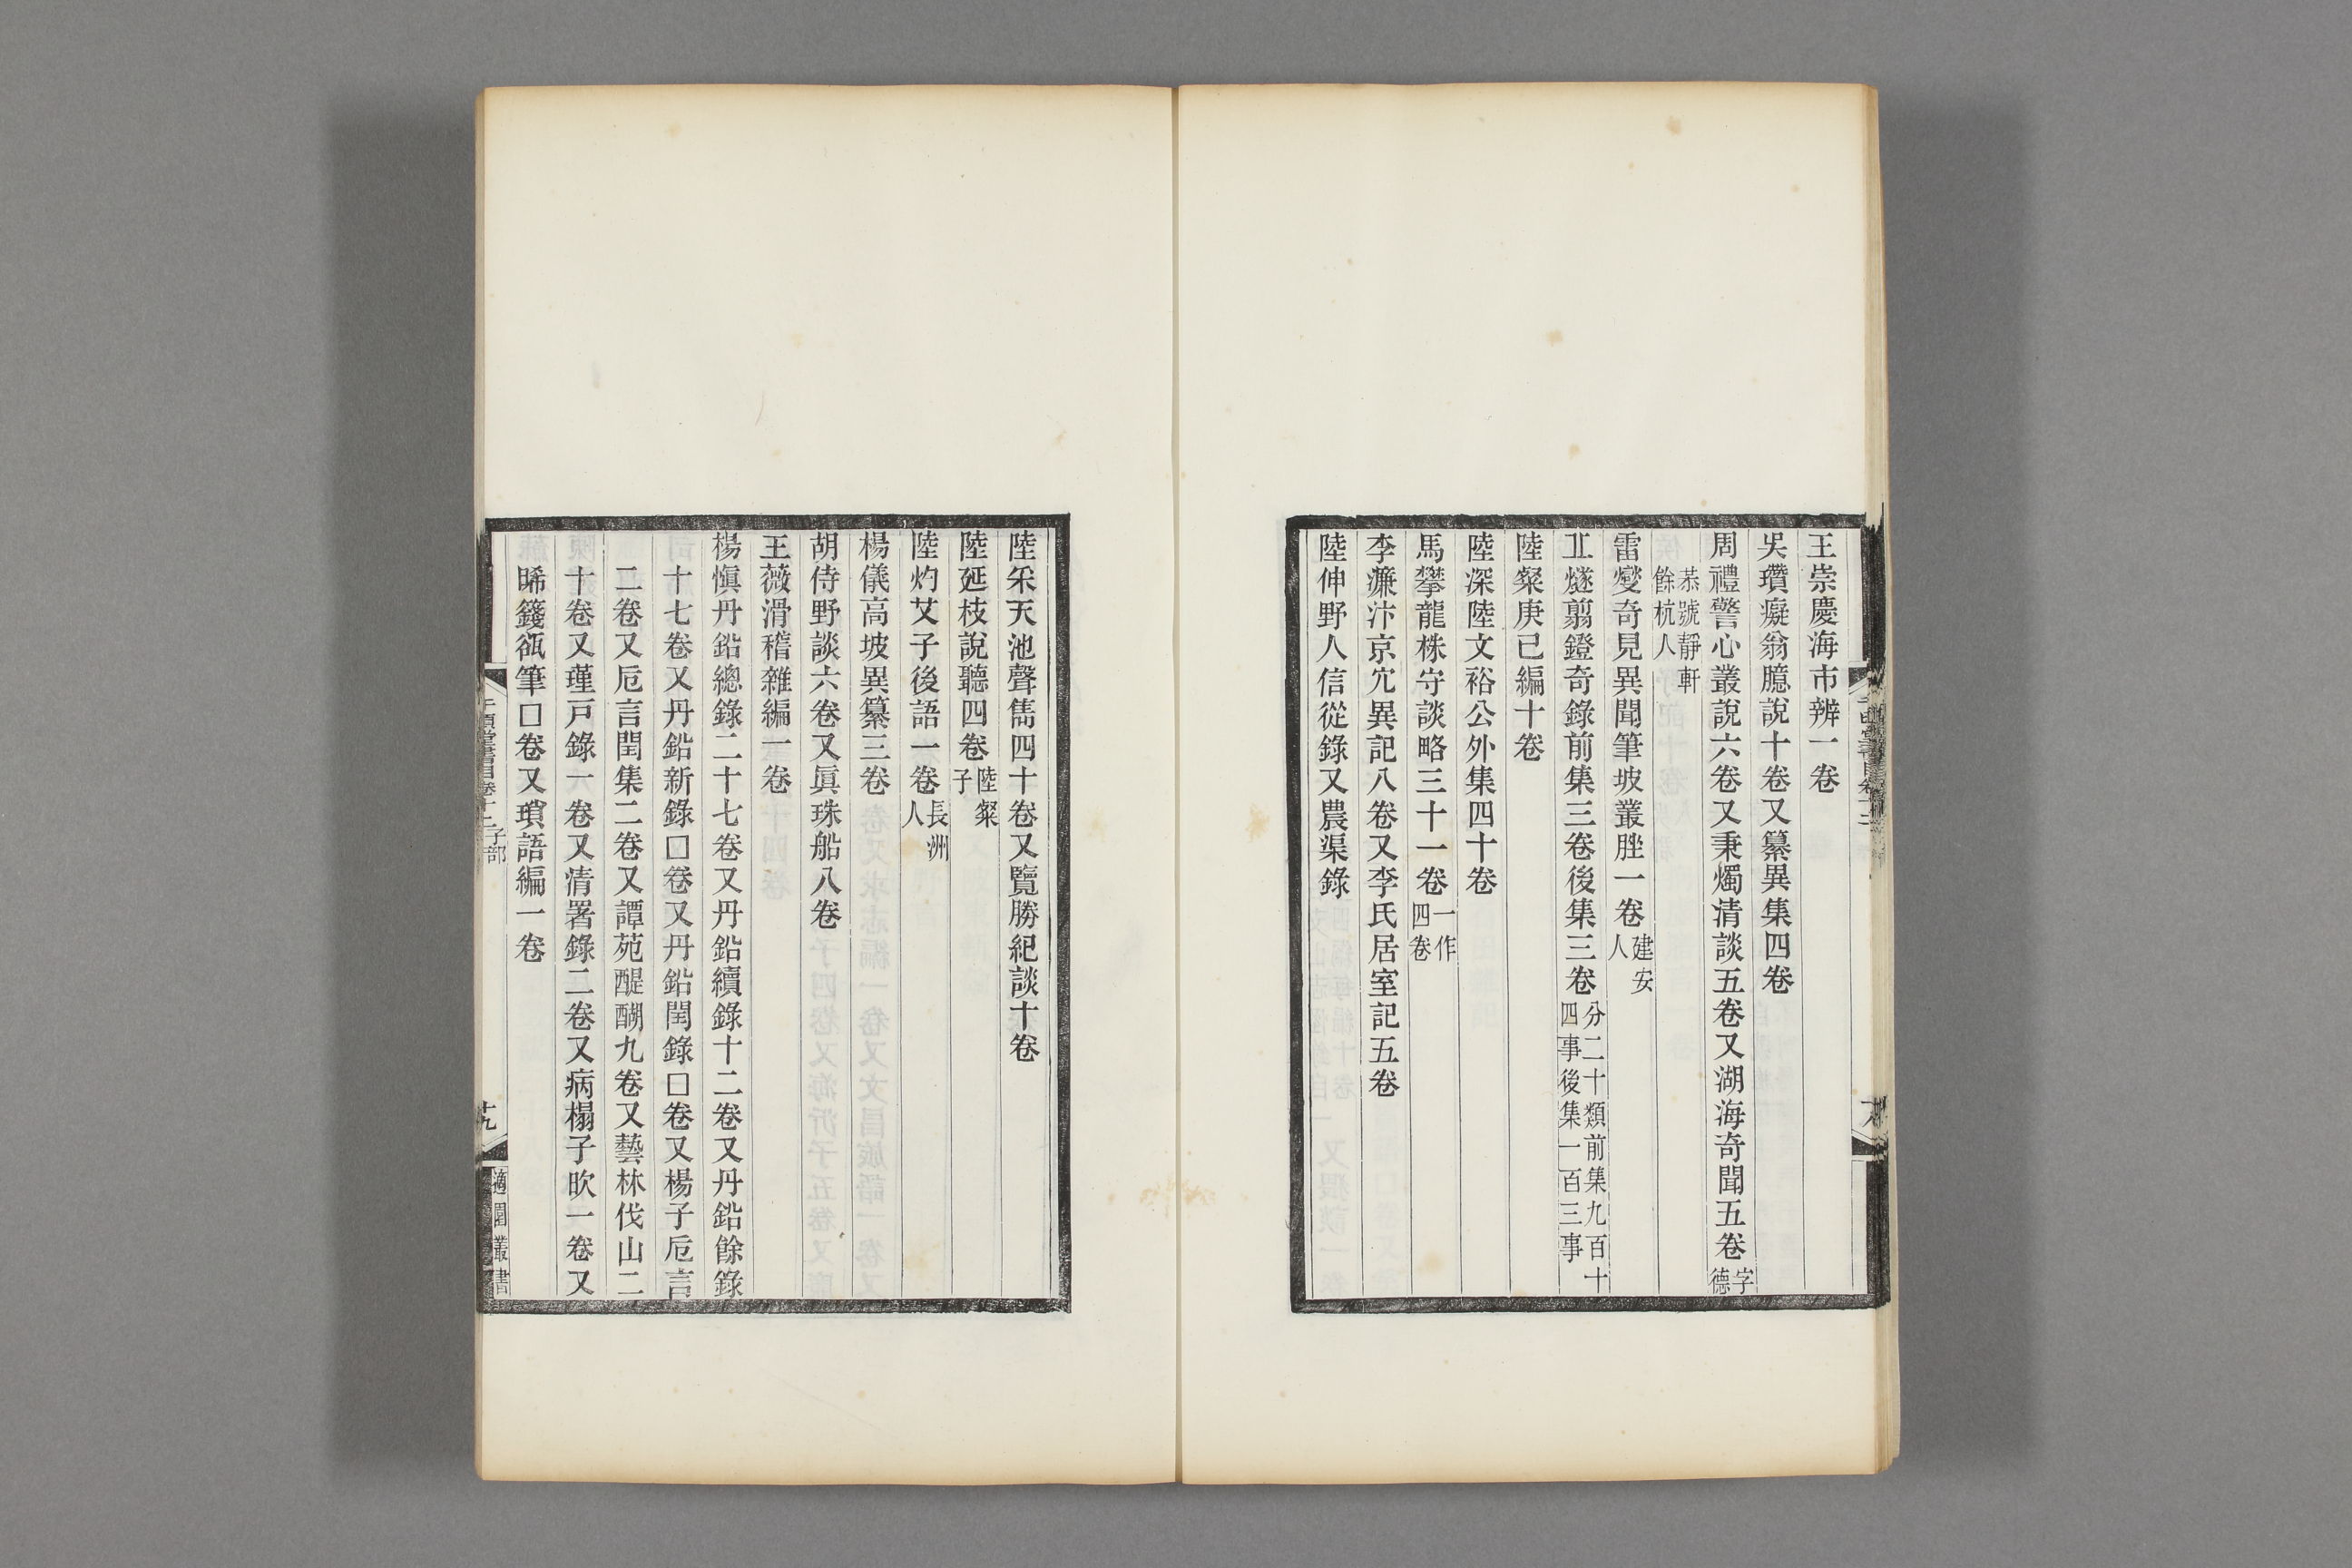 王崇慶海市辨一卷
吳瓚癡翁臆說十卷又纂異集四卷
周禮警心叢說六卷又秉燭清談五卷又湖海奇聞五卷字德
恭號靜軒餘杭人
雷燮奇見異聞筆坡叢脞一卷建安人
丘燧剪鐙奇錄前集三卷後集三卷分二十類前集九百十四事後集一百三事
陸粲庚已編十卷
陸深陸文裕公外集四十卷
馬攀龍株守談略三十一卷一作四卷
李濂汴京宂異記八卷又李氏居室記五卷
陸伸野人信從錄又農渠錄
陸采天池聲雋四十卷又覽勝紀談十卷
陸延枝說聽四卷陸粲子
陸灼艾子後語一卷長洲人
楊儀高坡異纂三卷
胡侍野談六卷又眞珠船八卷
王薇滑稽雜編一卷
楊愼丹鉛總錄二十七卷又丹鉛續錄十二卷又丹鉛餘錄
十七卷又丹鉛新錄□卷又丹鉛閏錄□卷又楊子卮言
二卷又卮言閏集二卷又譚苑醍醐九卷又藝林伐山二
十卷又墐戸錄一卷又清署錄二卷又病榻手欥一卷又
晞籛瓻筆□卷又瑣語編一卷
千頃堂書目卷十二子部
十九
適園叢書